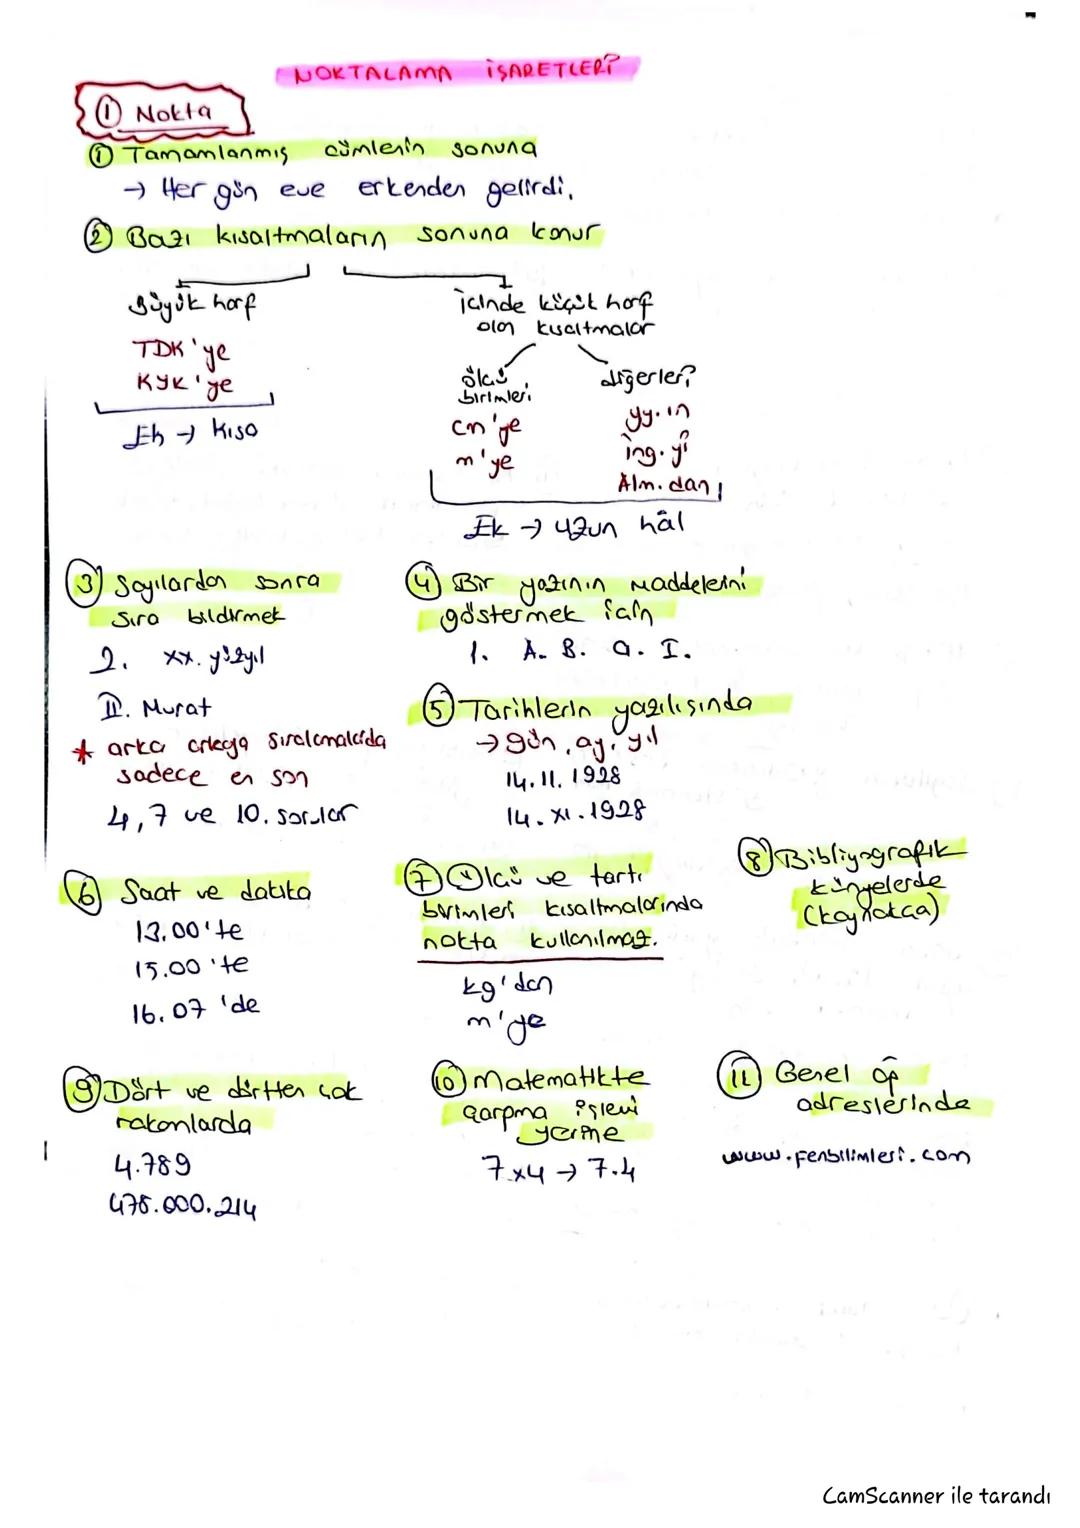 NOKTALAMA İŞARETLERİ
① Nokta
① Tamamlanmış cümlenin sonuna
→ Her gün eve erkenden gelirdi.
② Bazı kısaltmaların sonuna konur
Büyük harf
TDK'ye
KYK'ye
Ek → Kısa
içinde küçük harf
olan kısaltmalar
ölçü
birimleri
cm'ye
m'ye
diğerleri
yy.ın
ing.yi
Alm.dan
Ek → uzun hâl
③ Sayılardan sonra
sıra bildirmek
2. XX. yüzyıl
II. Murat
* arka arkaya sıralamalarda
sadece en son
4,7 ve 10. sorular
④ Bir yazının maddelerini
göstermek için
1. A. B. a. I.
⑤ Tarihlerin yazılışında
→ gün, ay, yıl
14.11.1928
14.XI.1928
⑥ Saat ve dakika
13.00'te
15.00'te
16.07'de
⑦ Ölçü ve tartı
birimleri kısaltmalarında
nokta kullanılmaz.
kg'dan
m'ye
⑧ Bibliyografik
künyelerde
(kaynakça)
⑨ Dört ve dörtten çok
rakamlarda
4.789
478.000.214
⑩ Matematikte
çarpma işlemi
yerine
7x4 → 7.4
⑪ Genel ağ
adreslerinde
www.fenbilimleri.com
CamScanner ile tarandı